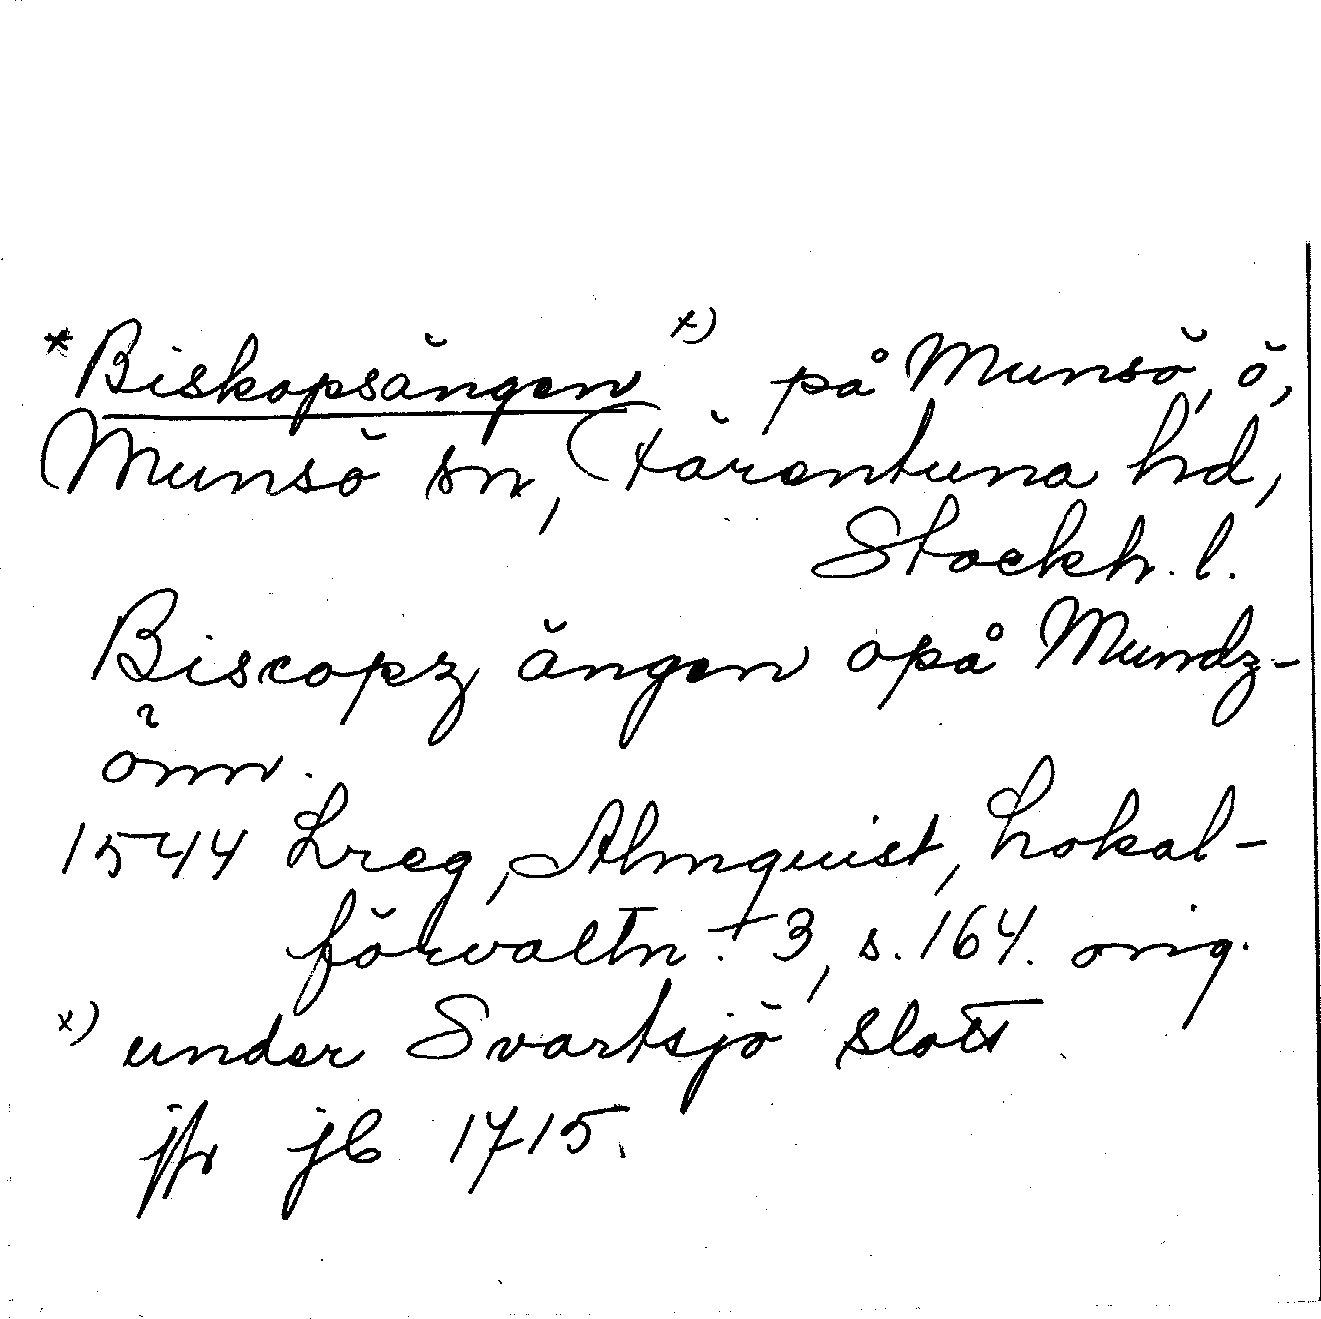 *Biskopsängen x) på Munsö, ö,
Munsö sn, Färentuna hd,
Stockh. l.
Biscopz ängen opå Mundz-
önn.
1544 Lreg, Almquist, Lokal-
förvaltn. + 3, s. 164. orig.
x) under Svartsjö slott
jfr jb 1715.